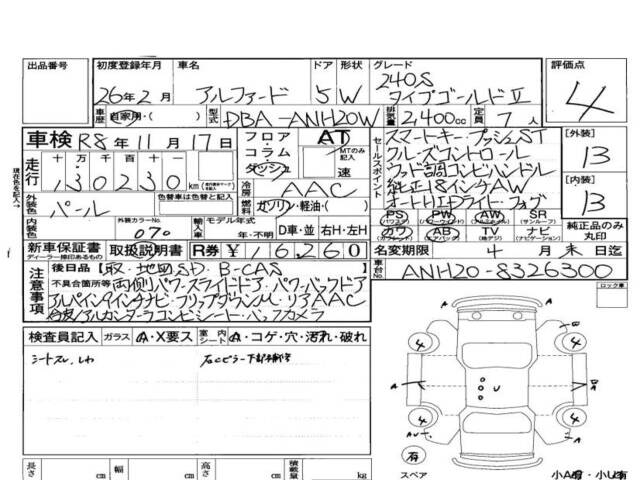 出品番号 初度登録年月 車名 ドア 形状 グレード 評価点
26年2月 アルファード 5 W 240S タイプゴールドⅡ 4
車歴 自家用・( ) 型式 DBA-ANH20W 排気量 2,400cc 定員 7人
車検 R8年11月17日 フロア・コラム・ダッシュ AT MTのみ記入 速
セールスポイント
スマートキー プッシュST
クルーズコントロール
ウッド調コンビハンドル
純正18インチAW
オートHIDライト・フォグ
[外装] 13
[内装] 13
現在色を記入→
走行 十万 万 千 百 十 130230 km
冷房 AAC
外装色 パール 色替車は色替と記入 燃料 ガソリン・軽油・( )
PS PW AW SR (サンルーフ) 純正品のみ丸印
カワ AB TV ナビ (ナビゲーション)
内装色 外装カラーNo. 070 輸入車 モデル年式 年・不明 D車・並 右H・左H
新車保証書 ディーラー捺印あるもの 取扱説明書 R券 ¥16,260 名変期限 4月末日迄
注意事項 後日品【取、地図SD、B-CAS 】 車台No. ANH20-8326300
不具合箇所等 両側パワースライドドア パワーバックドア
アルパイン11インチナビ フリップダウンM リアAAC
アルカンターラコンビシート バックカメラ
ロック車
検査員記入 ガラス A・X要ス 室内シート A・コゲ・穴・汚れ・破れ
シートスレ、しわ
4 4 4 4
A A B U
有 スペア
小A有・小U有
長さ cm 幅 cm 高さ cm 積載量 kg